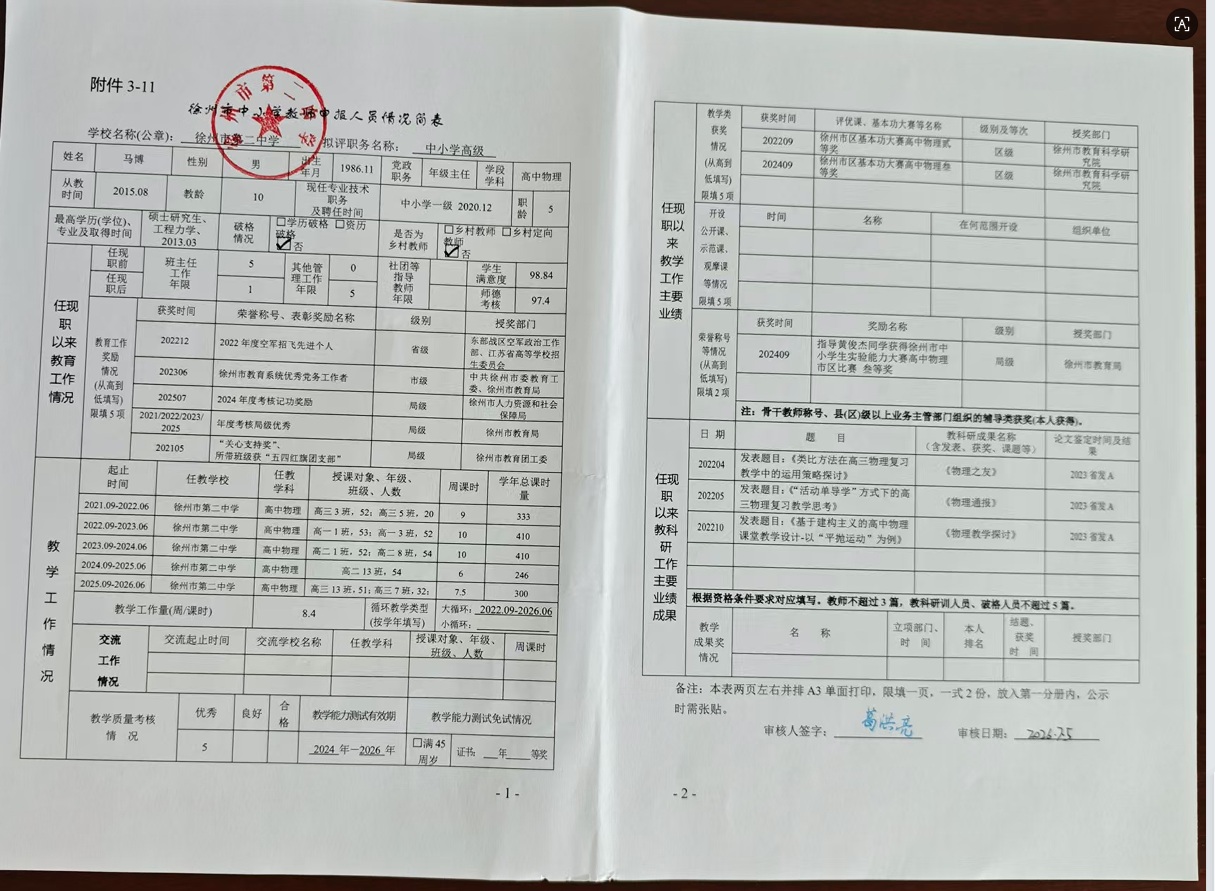 附件 3-11
徐州市中小学教师申报人员情况简表
学校名称(公章)： 徐州市第二中学 拟评职务名称： 中小学高级
姓名 马博 性别 男 出生年月 1986.11 党政职务 年级主任 学段学科 高中物理
从教时间 2015.08 教龄 10 现任专业技术职务及聘任时间 中小学一级 2020.12 职龄 5
最高学历(学位)、专业及取得时间 硕士研究生、工程力学、2013.03 破格情况 ☐学历破格 ☐资历破格 ☑否 是否为乡村教师 ☐乡村教师 ☐乡村定向教师 ☑否
任现职以来教育工作情况
任现职前 班主任工作年限 5 其他管理工作年限 0 社团等指导教师年限 学生满意度 98.84
任现职后 1 5 师德考核 97.4
教育工作奖励情况(从高到低填写)限填 5 项
获奖时间 荣誉称号、表彰奖励名称 级别 授奖部门
202212 2022 年度空军招飞先进个人 省级 东部战区空军政治工作部、江苏省高等学校招生委员会
202306 徐州市教育系统优秀党务工作者 市级 中共徐州市委教育工委、徐州市教育局
202507 2024 年度考核记功奖励 局级 徐州市人力资源和社会保障局
2021/2022/2023/2025 年度考核局级优秀 局级 徐州市教育局
202105 “关心支持奖”、所带班级获“五四红旗团支部” 局级 徐州市教育团工委
教学工作情况
起止时间 任教学校 任教学科 授课对象、年级、班级、人数 周课时 学年总课时量
2021.09-2022.06 徐州市第二中学 高中物理 高三 3 班，52；高三 5 班，20 9 333
2022.09-2023.06 徐州市第二中学 高中物理 高一 1 班，53；高一 3 班，52 10 410
2023.09-2024.06 徐州市第二中学 高中物理 高二 1 班，52；高二 8 班，54 10 410
2024.09-2025.06 徐州市第二中学 高中物理 高二 13 班，54 6 246
2025.09-2026.06 徐州市第二中学 高中物理 高三 13 班，51；高三 7 班，32； 7.5 300
教学工作量(周/课时) 8.4 循环教学类型(按学年填写) 大循环：2022.09-2026.06
小循环：
交流工作情况 交流起止时间 交流学校名称 任教学科 授课对象、年级、班级、人数 周课时
教学质量考核情 况 优秀 良好 合格 教学能力测试有效期 教学能力测试免试情况
5 2024 年－2026 年 ☐满 45 周岁 证书：__年____等奖
- 1 -
任现职以来教学工作主要业绩
教学类获奖情况(从高到低填写)限填 5 项
获奖时间 评优课、基本功大赛等名称 级别及等次 授奖部门
202209 徐州市区基本功大赛高中物理贰等奖 区级 徐州市教育科学研究院
202409 徐州市区基本功大赛高中物理叁等奖 区级 徐州市教育科学研究院
开设公开课、示范课、观摩课等情况限填 5 项
时间 名称 在何范围开设 组织单位
荣誉称号等情况(从高到低填写)限填 2 项
获奖时间 奖励名称 级别 授奖部门
202409 指导黄俊杰同学获得徐州市中小学生实验能力大赛高中物理市区比赛 叁等奖 局级 徐州市教育局
注：骨干教师称号、县(区)级以上业务主管部门组织的辅导类获奖(本人获得)。
任现职以来教科研工作主要业绩成果
日 期 题 目 教科研成果名称(含发表、获奖、课题等) 论文鉴定时间及结果
202204 发表题目：《类比方法在高三物理复习教学中的运用策略探讨》 《物理之友》 2023 省发 A
202205 发表题目：《“活动单导学”方式下的高三物理复习教学思考》 《物理通报》 2023 省发 A
202210 发表题目：《基于建构主义的高中物理课堂教学设计-以“平抛运动”为例》 《物理教学探讨》 2023 省发 A
根据资格条件要求对应填写。教师不超过 3 篇，教科研训人员、破格人员不超过 5 篇。
教学成果奖情况 名 称 立项部门、时 间 本人排名 结题、获奖时 间 授奖部门
备注：本表两页左右并排 A3 单面打印，限填一页，一式 2 份，放入第一分册内，公示时需张贴。
审核人签字： 葛洪亮 审核日期： 2026.7.5
- 2 -